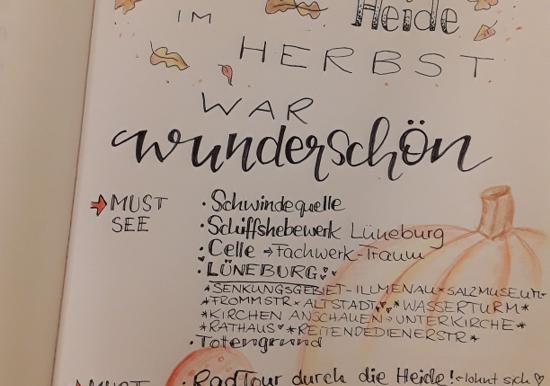 Heide
IM
HERBST
WAR
wunderschön
→ MUST SEE
· Schwindequelle
· Schiffshebewerk Lüneburg
· Celle → Fachwerk-Traum
· LÜNEBURG
* SENKUNGSGEBIET - ILLMENAU * SALZMUSEUM
* FROMMSTR * ALTSTADT * WASSERTURM *
* KIRCHEN ANSCHAUEN → UNTERKIRCHE *
* RATHAUS * REITENDEDIENERSTR *
· Totengrund
MUST · RadTour durch die Heide! - lohnt sich